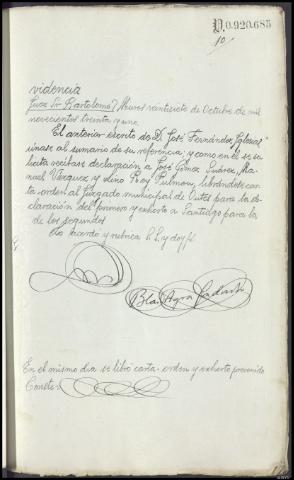 D.0.920.685
10
videncia
Juez Sr Bartolomé / Muros veintisiete de Octubre de mil
novecientos treinta y uno.
El anterior escrito de D. José Fernández Iglesias
únase al sumario de su referencia; y como en él se so-
licita recíbase declaración a José Gómez Suárez, Ma-
nuel Vázquez y Lino Pulmou, librándose car-
ta-orden al Juzgado municipal de Outes para la de-
claración del primero y exhorto a Santiago para la
de los segundos
Lo acordó y rubrica S.S. y doy fé
Blas Agra
En el mismo dia se libró carta-orden y exhorto prevenido
Consté